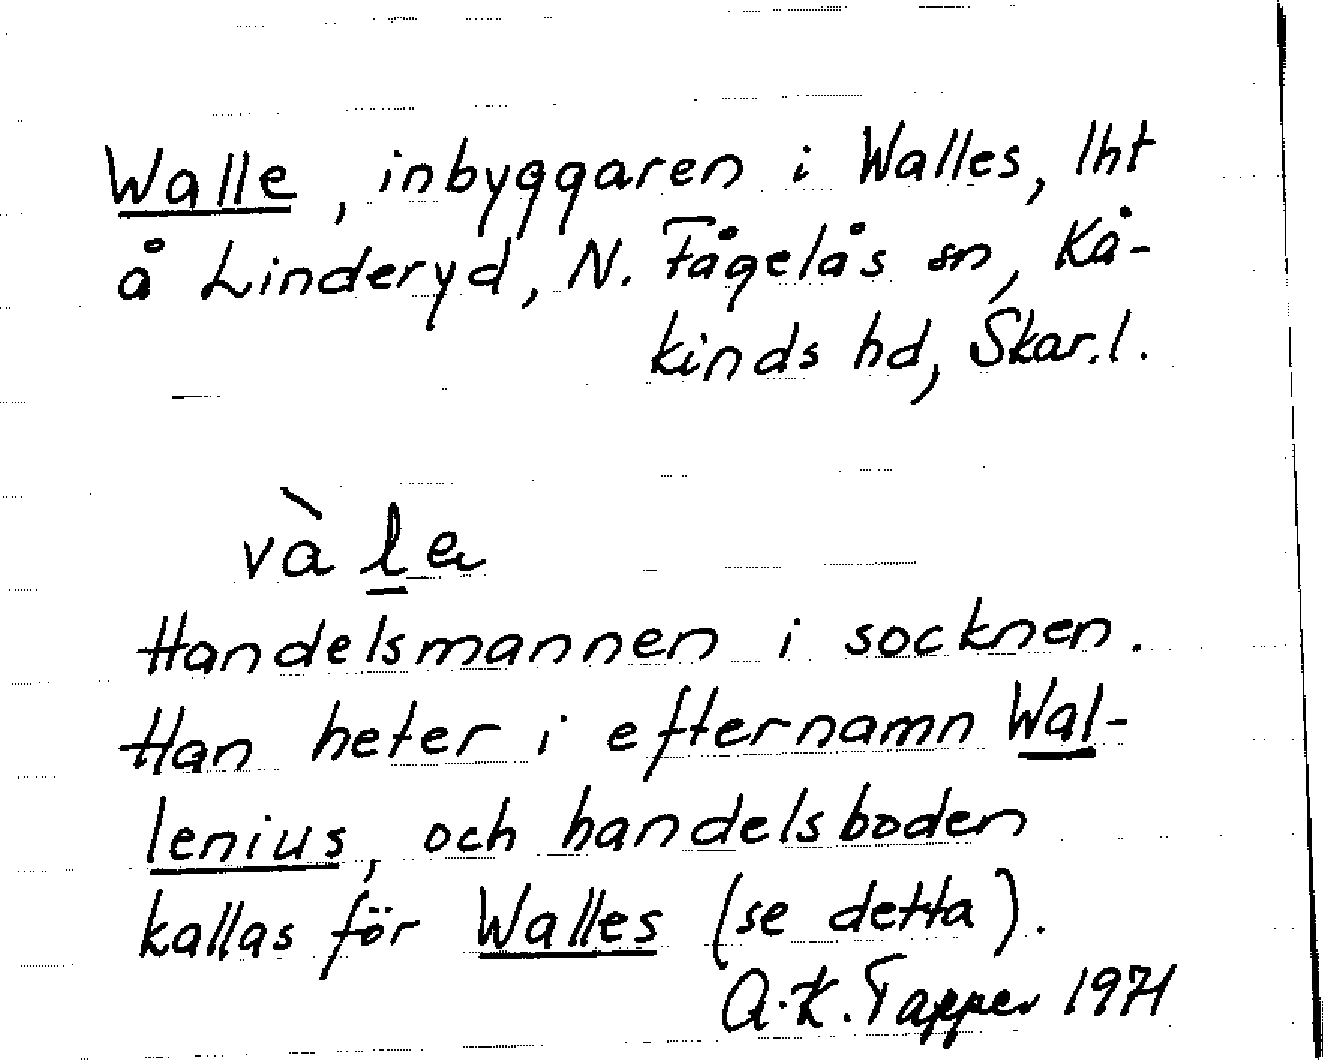 Walle, inbyggaren i Walles, lht
å Linderyd, N. Fågelås sn, Kå-
kinds hd, Skar.l.
và le
Handelsmannen i socknen.
Han heter i efternamn Wal-
lenius, och handelsboden
kallas för Walles (se detta).
A.K. Tapper 1971